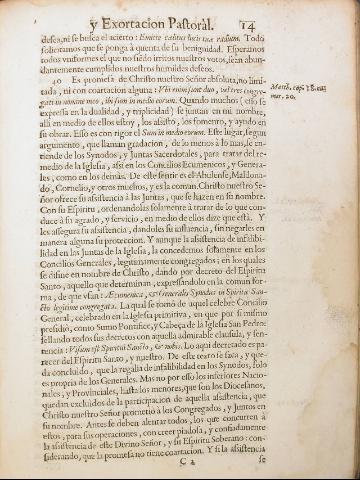 y Exortacion Pastoral. 14
desea, ni se busca el acierto: Emitte cælitus lucis tuæ radium. Todo
solicitamos que se ponga à quenta de su benignidad. Esperamos
todos vniformes el que no sean irritos nuestros votos, sean abun-
dantemente cumplidos nuestros humildes deseos.
40 Es promesa de Christo nuestro Señor absoluta, no limi-
tada, ni con coartacion alguna: Vbi enim sunt duo, vel tres congre-
gati in nomine meo, ibi sum in medio eorum. Quando muchos (esso se
expressa en la dualidad, y triplicidad) se juntan en mi nombre,
alli en medio de ellos estoy, los assisto, los fomento, y ayudo en
su obrar. Esso es con rigor el Sum in medio eorum. Este lugar, segun
argumento, que llaman gradacion, de lo menos à lo mas, se en-
tiende de los Synodos, y Juntas Sacerdotales, para tratar del re-
medio de la Iglesia, assi en los Concilios Ecumenicos, y Genera-
les, como en los demàs. De este sentir es el Abulense, Maldona-
do, Cornelio, y otros muchos, y es la comun. Christo nuestro Se-
ñor ofrece su assistencia à las Juntas, que se hazen en su nombre.
Con su Espiritu, ordenandolas solamente à tratar de lo que con-
duce à su agrado, y servicio, en medio de ellos dize que està. Y
les assegura su assistencia, dandoles su influencia, sin negarles en
manera alguna su proteccion. Y aunque la assistencia de infalibi-
lidad en las Juntas de la Iglesia, la concedemos solamente en los
Concilios Generales, legitimamente congregados; en los quales
se difine en nombre de Christo, dando por decreto del Espiritu
Santo, aquello que determinan, expressandolo en la comun for-
ma, de que vsan: Æcumenica, & Generalis Synodus in Spiritu San-
cto legitimè congregata. La qual se tomò de aquel celebre Concilio
General, celebrado en la Iglesia primitiva, en que por si mismo
presidiò, como Sumo Pontifice, y Cabeça de la Iglesia San Pedro:
sellando todos sus decretos con aquella admirable clausula, y sen-
tencia: Visum est Spiritui Sancto, & nobis. Lo aqui decretado es pa-
recer del Espiritu Santo, y nuestro. De este texto se saca, y que-
da concluido, que la regalia de infalibilidad en los Synodos, solo
es propria de los Generales. Mas no por esso los inferiores Nacio-
nales, y Provinciales, hasta los menores, que son los Diocesanos,
quedan excluidos de la participacion de aquella assistencia, que
Christo nuestro Señor prometiò à los Congregados, y Juntos en
su nombre. Antes se deben alentar todos, los que concurren à
estos, para sus operaciones, con creer piadosa, y confiadamente
la assistencia de este Divino Señor, y su Espiritu Soberano: con-
siderando, que la promesa no tiene coartacion. Y si la assistencia
C 2 se
Matth. cap. 18.
nu. 20.